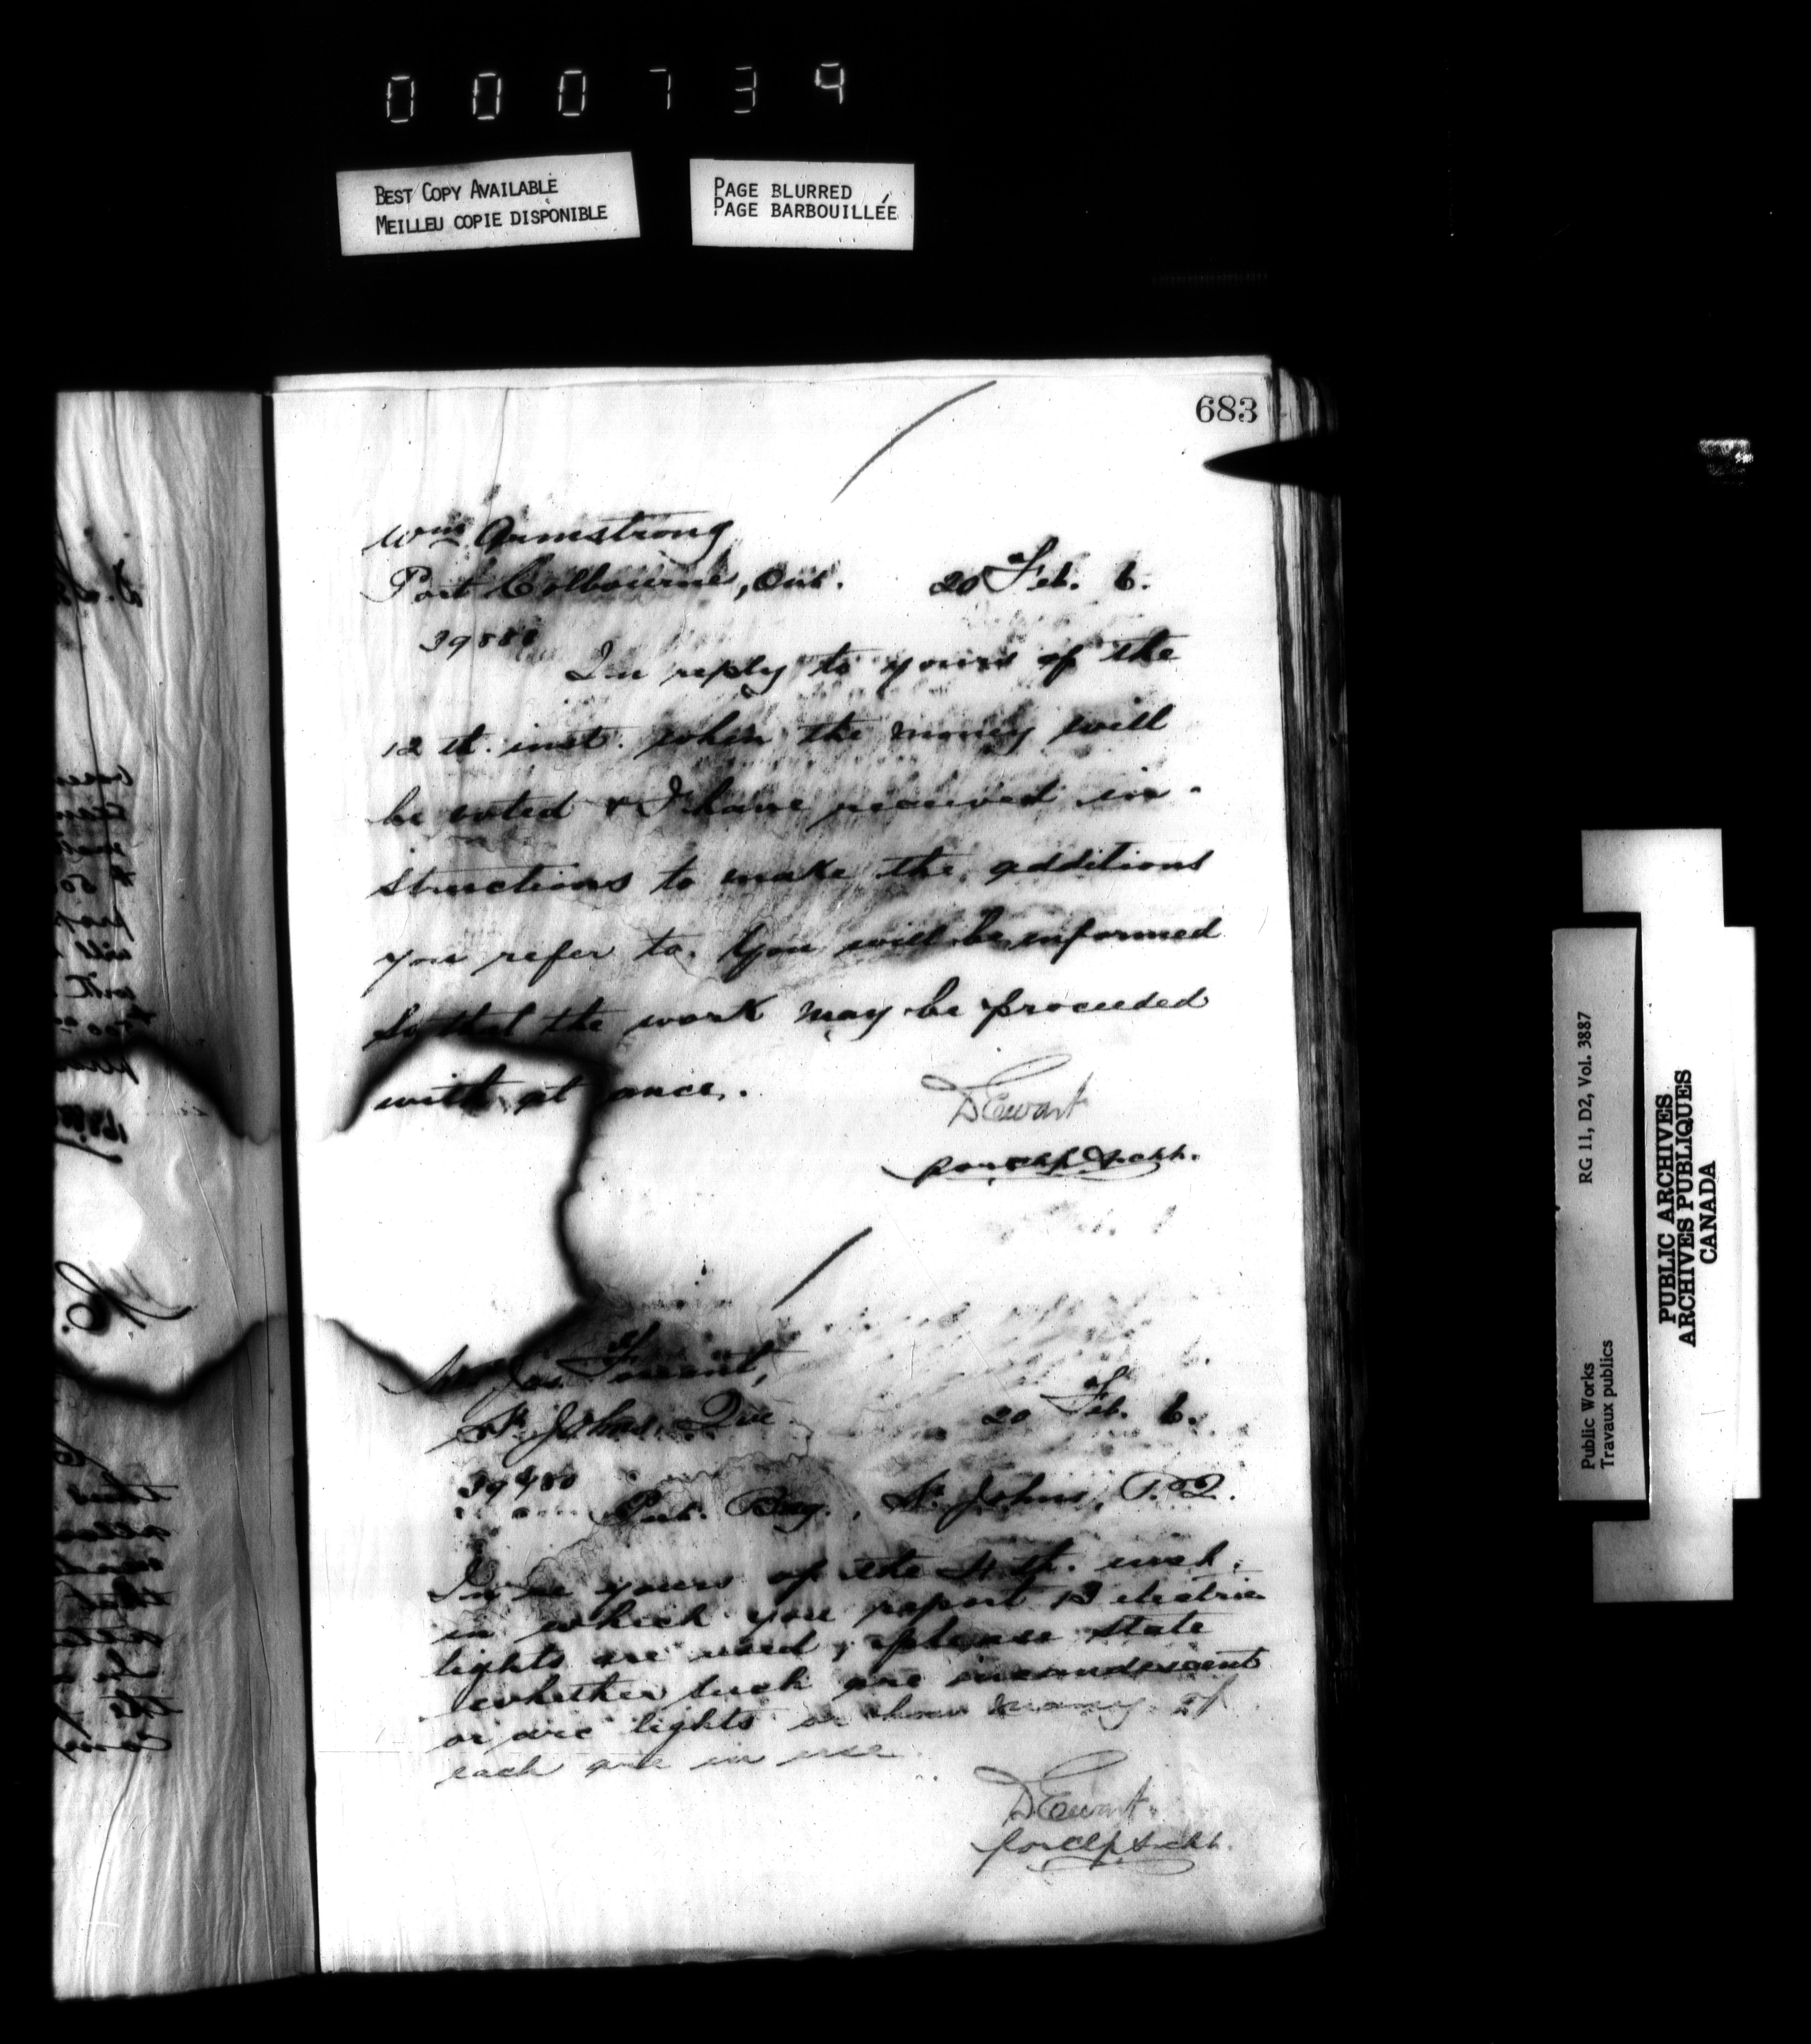 000734
BEST COPY AVAILABLE
MEILLEU COPIE DISPONIBLE
PAGE BLURRED
PAGE BARBOUILLÉE
683
Wm Armstrong
Port Colbourne, Ont. 20 Feb. 6.
In reply to yours of the
12 th. inst. when the money will
be voted & I have received in-
structions to make the additions
you refer to. You will be informed
So that the work may be proceeded
with at once.
D Ewart
St. Johns, Que. 20 Feb. 6.
39480
St. Johns, P.Q.
In re yours of the 4 th. inst.
in which you report 13 electric
lights are used, please state
whether such are incandescent
or arc lights or how many of
each are in use.
D Ewart.
RG 11, D2, Vol. 3887
Public Works
Travaux publics
PUBLIC ARCHIVES
ARCHIVES PUBLIQUES
CANADA